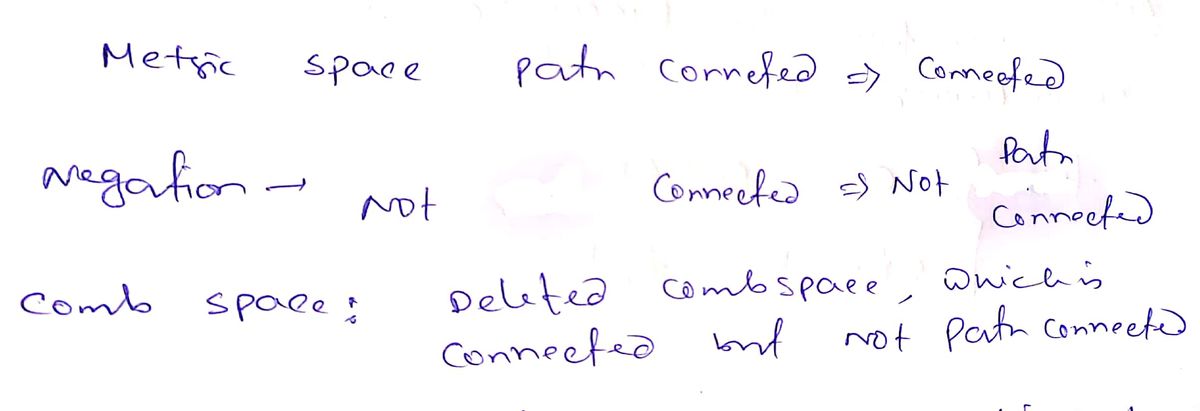 Metric space path connected ⇒ Connected
Negation → Not Connected ⇒ Not Path Connected
Comb space: Deleted comb space, which is
Connected but not Path Connected